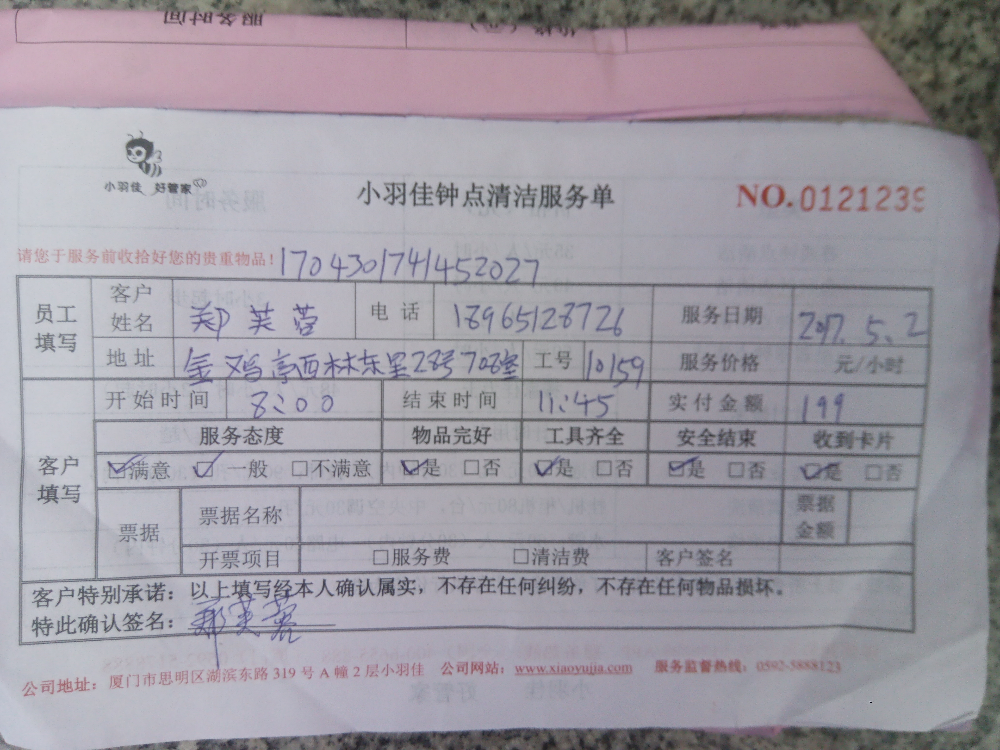 服务时间
小羽佳 好管家
小羽佳钟点清洁服务单
NO.0121239
请您于服务前收拾好您的贵重物品!
170430174145202​7
员工填写 客户姓名 郑芙蓉 电话 18965128726 服务日期 2017.5.2
地址 金鸡亭西林东里28号708室 工号 10159 服务价格 元/小时
客户填写 开始时间 8:00 结束时间 11:45 实付金额 199
服务态度 物品完好 工具齐全 安全结束 收到卡片
☑满意 ☑一般 □不满意 ☑是 □否 ☑是 □否 ☑是 □否 ☑是 □否
票据 票据名称 票据金额
开票项目 □服务费 □清洁费 客户签名
客户特别承诺:以上填写经本人确认属实,不存在任何纠纷,不存在任何物品损坏。
特此确认签名:郑芙蓉
公司地址:厦门市思明区湖滨东路 319 号 A 幢 2 层小羽佳 公司网站:www.xiaoyujia.com 服务监督热线:0592-5888123